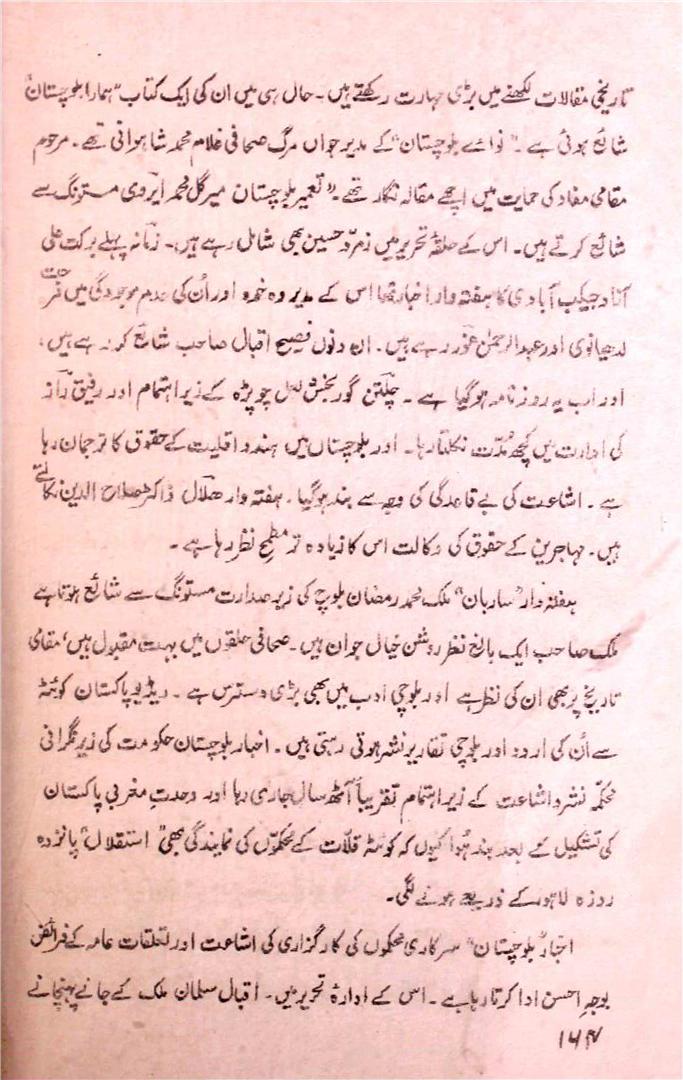 تاریخی مقالات لکھنے میں بڑی مہارت رکھتے ہیں۔ حال ہی میں ان کی ایک کتاب "ہمارا بلوچستان"
شائع ہوئی ہے۔ "نوائے بلوچستان" کے مدیر جواں مرگ صحافی غلام محمد شاہوانی تھے۔ مرحوم
مقامی مفاد کی حمایت میں اچھے مقالہ نگار تھے۔ "تعمیر بلوچستان میر گل محمد ایروی مستونگ سے
شائع کرتے ہیں۔ اس کے حلقۂ تحریر میں زمرد حسین بھی شامل رہے ہیں۔ زمانہ پہلے برکت علی
آزاد جیکب آبادی کا ہفتہ وار اخبار تھا اس کے مدیر وہ خود اور اُن کی عدم موجودگی میں فرحت
لدھیانوی اور عبدالرحمٰن غور رہے ہیں۔ ان دنوں فصیح اقبال صاحب شائع کر رہے ہیں،
اور اب یہ روزنامہ ہو گیا ہے۔ چلتن گوربخش لعل چوپڑہ کے زیر اہتمام اور رفیق راز
کی ادارت میں کچھ مُدّت نکلتا رہا۔ اور بلوچستان میں ہندو اقلیت کے حقوق کا ترجمان رہا
ہے۔ اشاعت کی بے قاعدگی کی وجہ سے بند ہو گیا۔ ہفتہ وار ھلال ڈاکٹر صلاح الدین نکالتے
ہیں۔ مہاجرین کے حقوق کی وکالت اس کا زیادہ تر مطمحِ نظر رہا ہے۔
ہفتہ وار "ساربان" ملک محمد رمضان بلوچ کی زیر صدارت مستونگ سے شائع ہوتا ہے
ملک صاحب ایک بالغ نظر روشن خیال جوان ہیں۔ صحافی حلقوں میں بہت مقبول ہیں، مقامی
تاریخ پر بھی ان کی نظر ہے اور بلوچی ادب میں بھی بڑی دسترس ہے۔ ریڈیو پاکستان کوئٹہ
سے اُن کی اردو اور بلوچی تقاریر نشر ہوتی رہتی ہیں۔ اخبار بلوچستان حکومت کی زیر نگرانی
محکمہ نشر و اشاعت کے زیر اہتمام تقریباً آٹھ سال جاری رہا اور وحدتِ مغربی پاکستان
کی تشکیل کے بعد بند ہُوا کیوں کہ کوئٹہ قلات کے محکموں کی نمایندگی بھی "استقلال" پانزدہ
روزہ لاہور کے ذریعے ہونے لگی۔
اخبار "بلوچستان" سرکاری محکموں کی کارگزاری کی اشاعت اور تعلقات عامہ کے فرائض
بوجہِ احسن ادا کرتا رہا ہے۔ اس کے ادارۂ تحریر میں۔ اقبال سلمان ملک کے جانے پہنچانے
۱۶۴